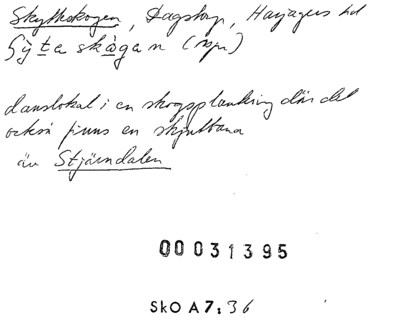 Skyttskogen, Dagstorp, Harjagers hd
danslokal i en skogsplantering där det
också finns en skjutbana
äv Stjärndalen
00031395
SkO A7:36